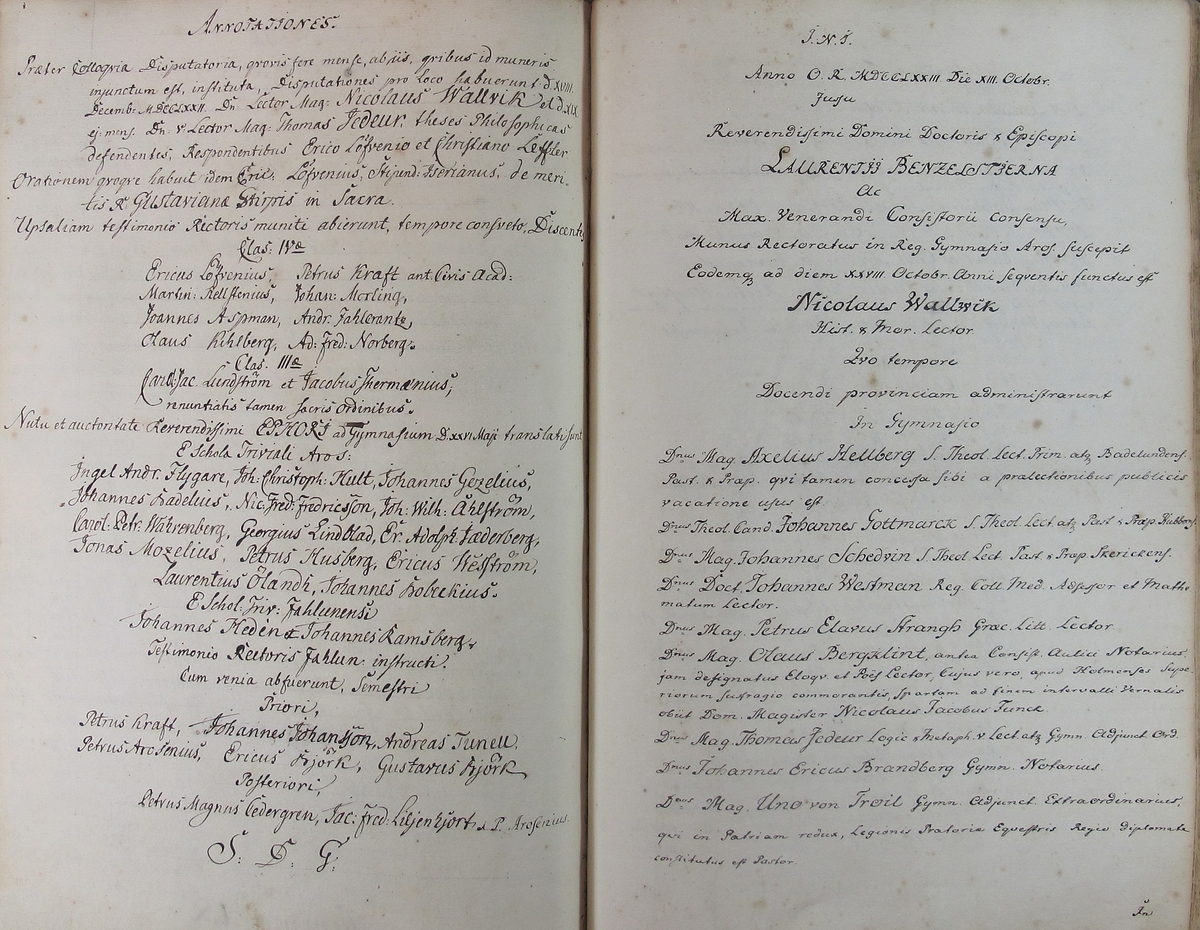 ANNOTATIONES.
Præter Colloqvia Disputatoria, qvovis fere mense, ab iis, qvibus id muneris
injunctum est, instituta, Disputationes pro Loco habuerunt d. XVIII.
Decemb: MDCCLXXII. Dn: Lector Mag: Nicolaus Wallvik et d. XIX
ej: mens. Dn. v. Lector Mag: Thomas Jedeur, theses Philosophicas
defendentes, Respondentibus Erico Löfvenio et Christiano Leffler
Orationem qvoqve habuit idem Eric: Löfvenius, Stipend: Iserianus, de meri-
tis R. Gustavianæ Stirpis in Sacra.
Upsaliam testimonio Rectoris muniti abierunt, tempore consveto, Discentes
Clas: IVæ
Ericus Löfvenius, Petrus Kraft ant. Civis Acad:
Martin: Rellstenius, Johan: Morling,
Joannes Aspman, Andr. Fahlerantz,
Claus Kihlberg, Ad: Fred: Norberg.
Clas. IIIæ
Carol: Jac. Lundström et Jacobus Thermænius,
renuntiatis tamen sacris ordinibus.
Nutu et auctoritate Reverendissimi EPHORI ad Gymnasium D. XXVI Maji translati sunt
E Schola Triviali Aros:
Ingel Andr. Flygare, Joh: Christoph: Hult, Johannes Gezelius,
Johannes Badelius, Nic: Fred: Fredricsson, Joh: Wilh: Ahlström,
Carol: Petr: Wahrenberg, Georgius Lindblad, Er. Adolph Faderberg,
Jonas Mozelius, Petrus Husberg, Ericus Weström,
Laurentius Ölandh, Johannes Bobeckius.
E Schol: Triv: Fahlunensi
Johannes Hedén et Johannes Ramsberg,
Testimonio Rectoris Fahlun: instructi.
Cum venia abfuerunt, Semestri
Priori,
Petrus Kraft, Johannes Johansson, Andreas Tunell.
Petrus Arosenius, Ericus Björk, Gustavus Björk
Posteriori,
Petrus Magnus Cedergren, Jac: Fred: Liljenhjort & P. Arosenius.
S. D. G.
I. N. J.
Anno O. R. MDCCLXXIII. Die XIII. Octobr.
Jussu
Reverendissimi Domini Doctoris & Episcopi
LAURENTII BENZELSTIERNA
Ac
Max. Venerandi Consistorii consensu,
Munus Rectoratus in Reg. Gymnasio Aros. suscepit
Eodemq; ad diem XXVIII. Octobr. Anni seqventis functus est
Nicolaus Wallwik
Hist. & Mor. Lector
Qvo tempore
Docendi provinciam administrarunt
In Gymnasio
Dnus Mag. Axelius Hellberg S. Theol. Lect. Prim. atq; Badelundens.
Past. & Præp. qvi tamen concessa sibi a prælectionibus publicis
vacatione usus est
Dnus Theol. Cand. Johannes Fottmarck S. Theol. Lect. atq; Past. & Præp. Kubbens.
Dnus Mag. Johannes Schedvin S. Theol. Lect. Past. & Præp. Skerickens.
Dnus Doct. Johannes Westman Reg. Coll. Med. Adsessor et Mathe-
matum Lector.
Dnus Mag. Petrus Elavus Strangh Græc. Litt. Lector
Dnus Mag. Olaus Bergklint, antea Consist. Aulici Notarius,
jam designatus Eloqv. et Poës Lector, Cujus vero, apud Holmenses Supe-
riorum suffragio commorantis, spartam ad finem intervalli Vernalis
obiit Dom. Magister Nicolaus Jacobus Funck.
Dnus Mag. Thomas Jedeur Logic. & Metaph. v. Lect. atq; Gymn. Adjunct. Ord.
Dnus Johannes Ericus Brandberg Gymn. Notarius.
Dnus Mag. Uno von Troil Gymn. Adjunct. Extraordinarius,
qvi in Patriam redux, Legionis Prætoriæ Eqvestris Regio diplomate
constitutus est Pastor.
In